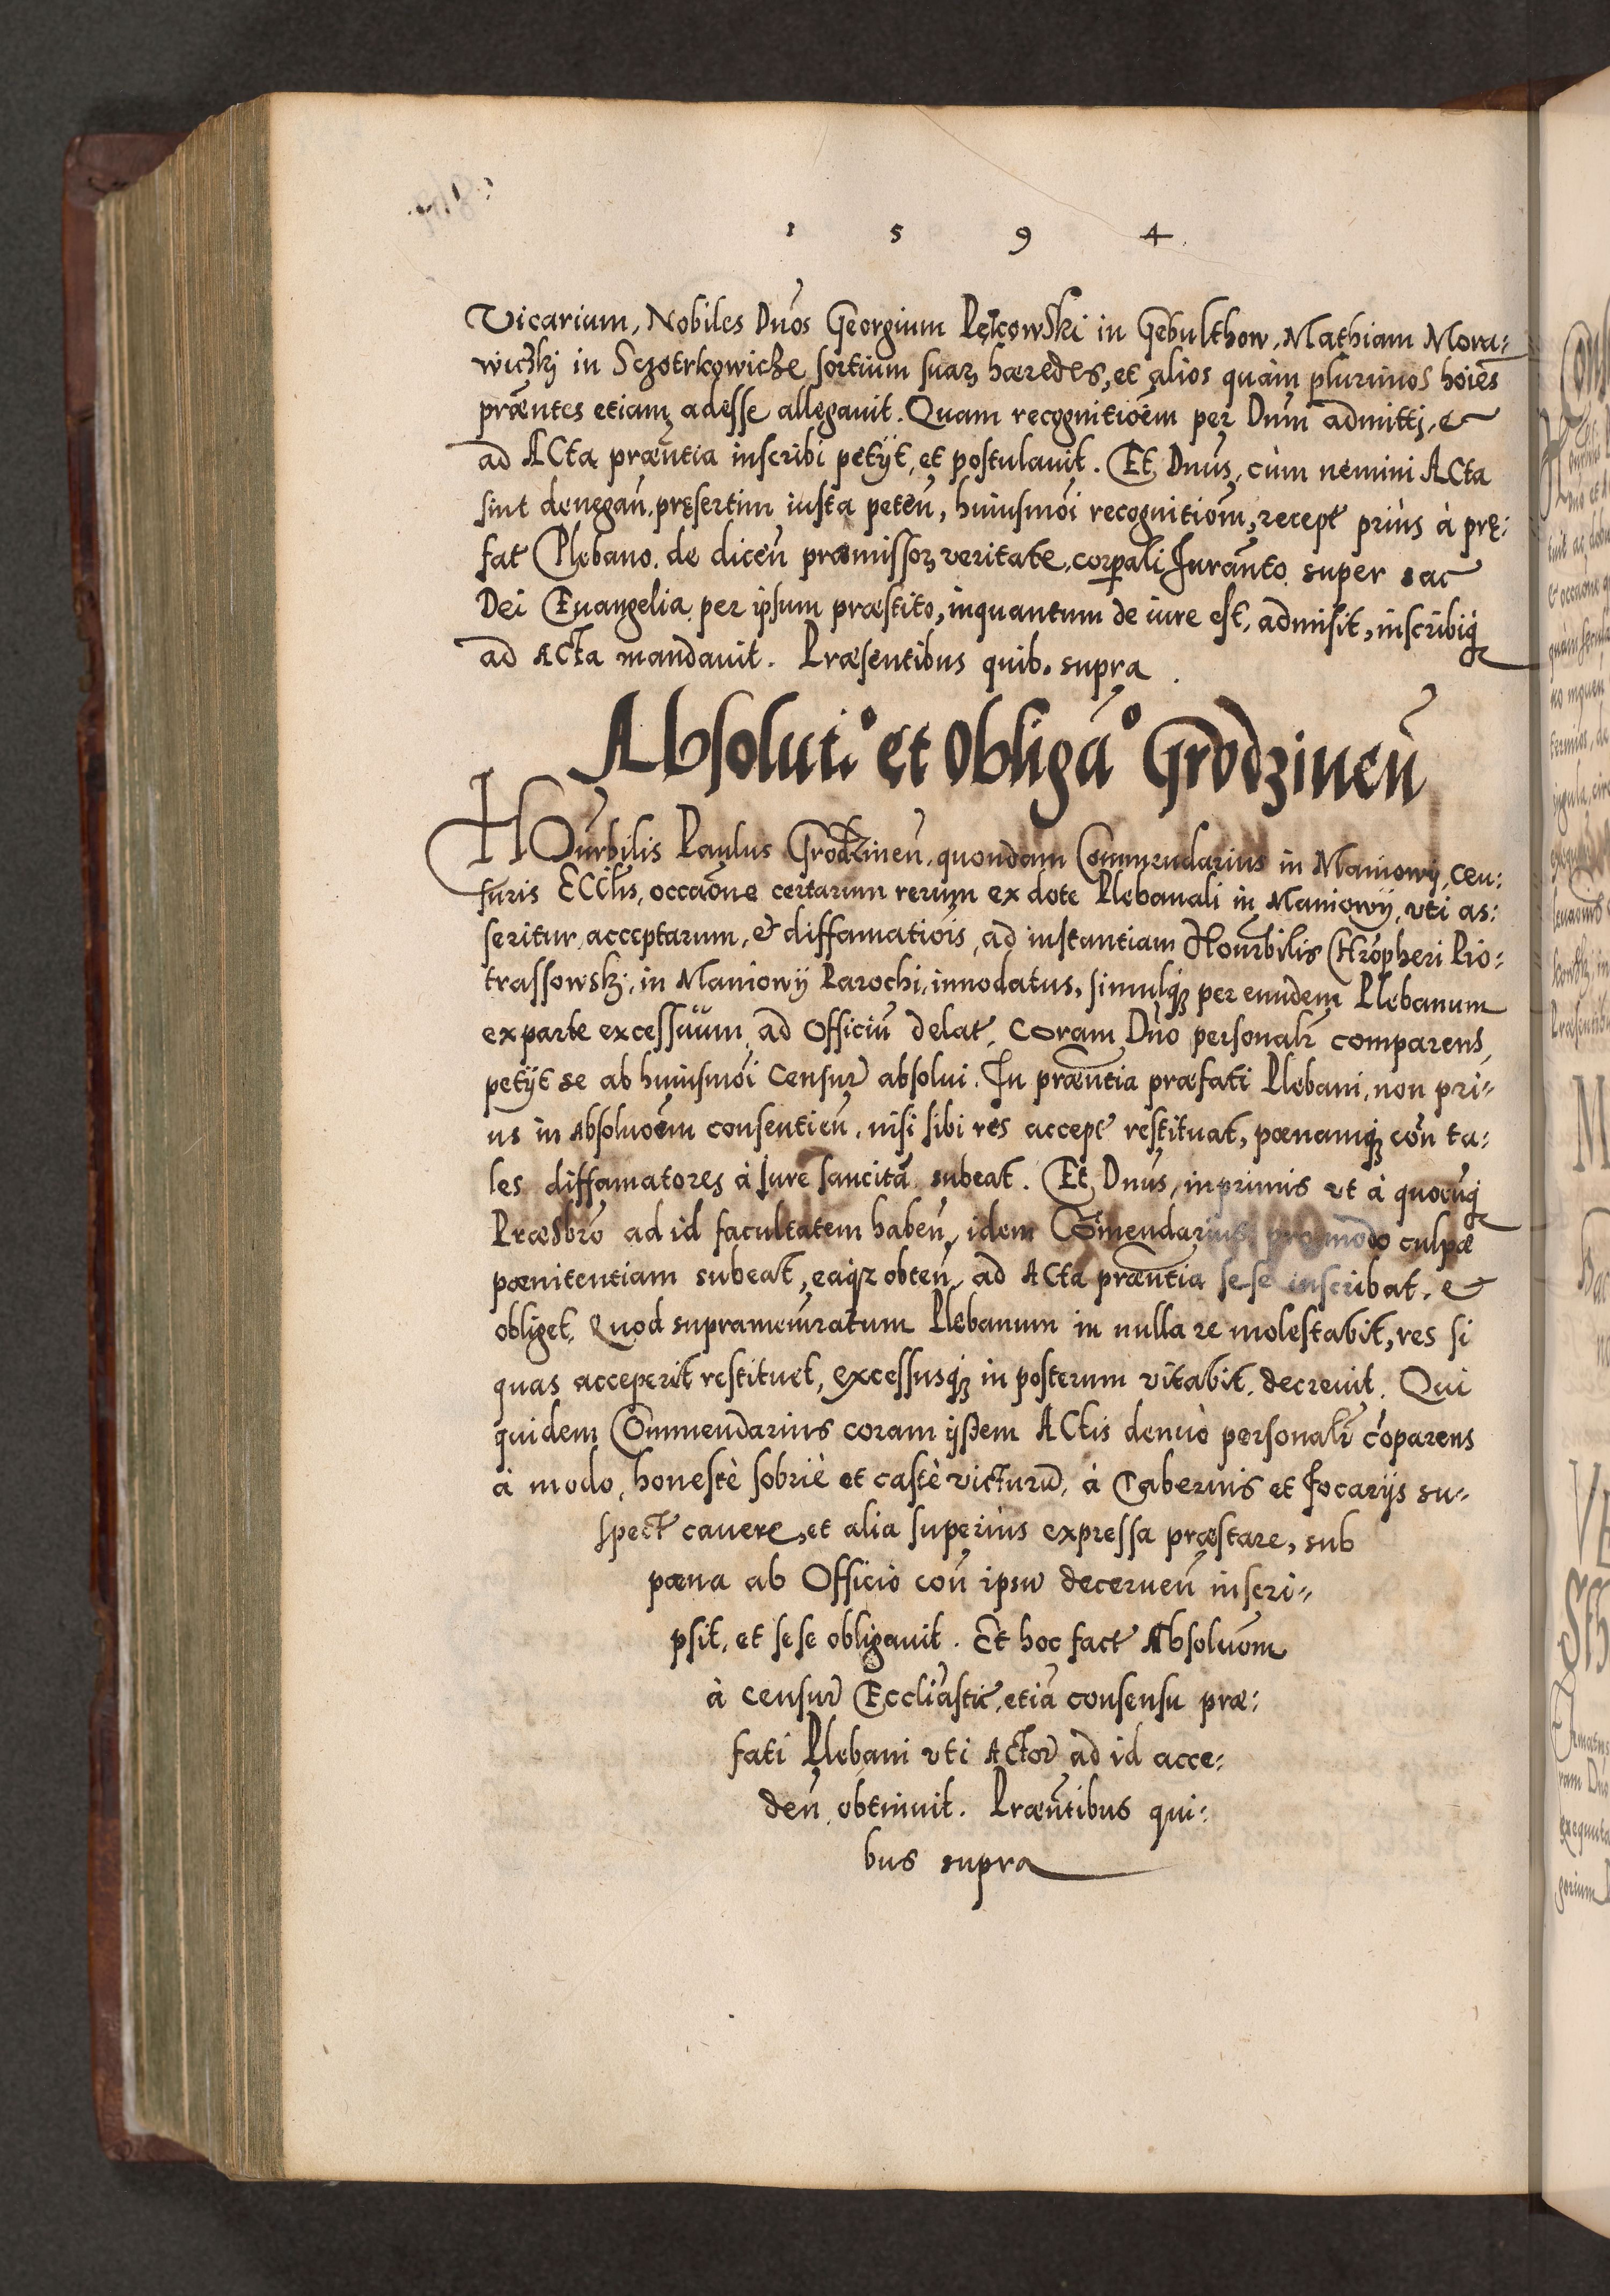 1 5 9 4
Vicarium, Nobiles Dños Georgium Pękowski in Gebulthow, Mathiam Mora-
wiczkj in Sczotrkowicze sortium suarꝫ hæredes, et alios quàm plurimos hoiẽs
præñtes etiam adesse allegauit. Quam recognitioẽm per Dnũm admittj, &
ad ACta præñtia inscribi petÿt, et postulauit. Et Dnũs, cùm nemini ACta
sint denegañ. pręsertim iusta peteñ, huiusmõi recognitioñm, recept priùs à prę:
fat Plebano. de diceñ præmissorꝫ veritate, corpali Iurañto super sac
Dei Euangelia per ipsum præstito, inquantum de iure est, admisit, inscribiq́
ad ACta mandauit. Præsentibus quib. supra.
Absolutio et Obligão Grodzineñ
HOnrbilis Paulus Grodzineñ. quondam Commendarius in Maniowÿ, cen:
suris ECClis, occaõne certarum rerum ex dote Plebanali in Maniowÿ, vti as:
seritur, acceptarum, & diffamatiõis, ad instantiam Honrbilis Chrõpheri Pio:
trassowskj, in Maniowÿ Parochi, innodatus, simulqꝫ per eundem Plebanum
ex parte excessuũm ad Officiũ delat, Coram Dño personalr comparens,
petÿt se ab huiusmõi Censur absolui. In præñtia præfati Plebani, non pri-
us in Absoluoẽm consentieñ, nisi sibi res accept restituat, pœnamqꝫ coñ ta:
les diffamatores à Iure sancitã subeat. Et Dnũs, inprimis vt à quocũq́
Præsbrõ ad id facultatem habeñ, idem Cõmendarius, pro modo culpæ
pœnitentiam subeat, eaqꝫ obteñ, ad ACta præñtia sese inscribat. &
obliget, Quod supramemratum Plebanum in nulla re molestabit, res si
quas acceperit restituet, excessusqꝫ in posterum vitabit, decreuit. Qui
quidem Commendarius coram ijsdem ACtis denuò personalr cõparens
à modo, honestè sobriè et castè victurũ, à Tabernis et Focarijs su-
spect cauere, et alia superius expressa præstare, sub
pœna ab Officio coñ ipsũ decerneñ inscri-
psit, et sese obligauit. Et hoc fact Absoluoñm
à censur Ecclĩastic, etiã consensu præ:
fati Plebani vti ACtor ad id acce:
deñ, obtinuit. Præñtibus qui:
bus supra